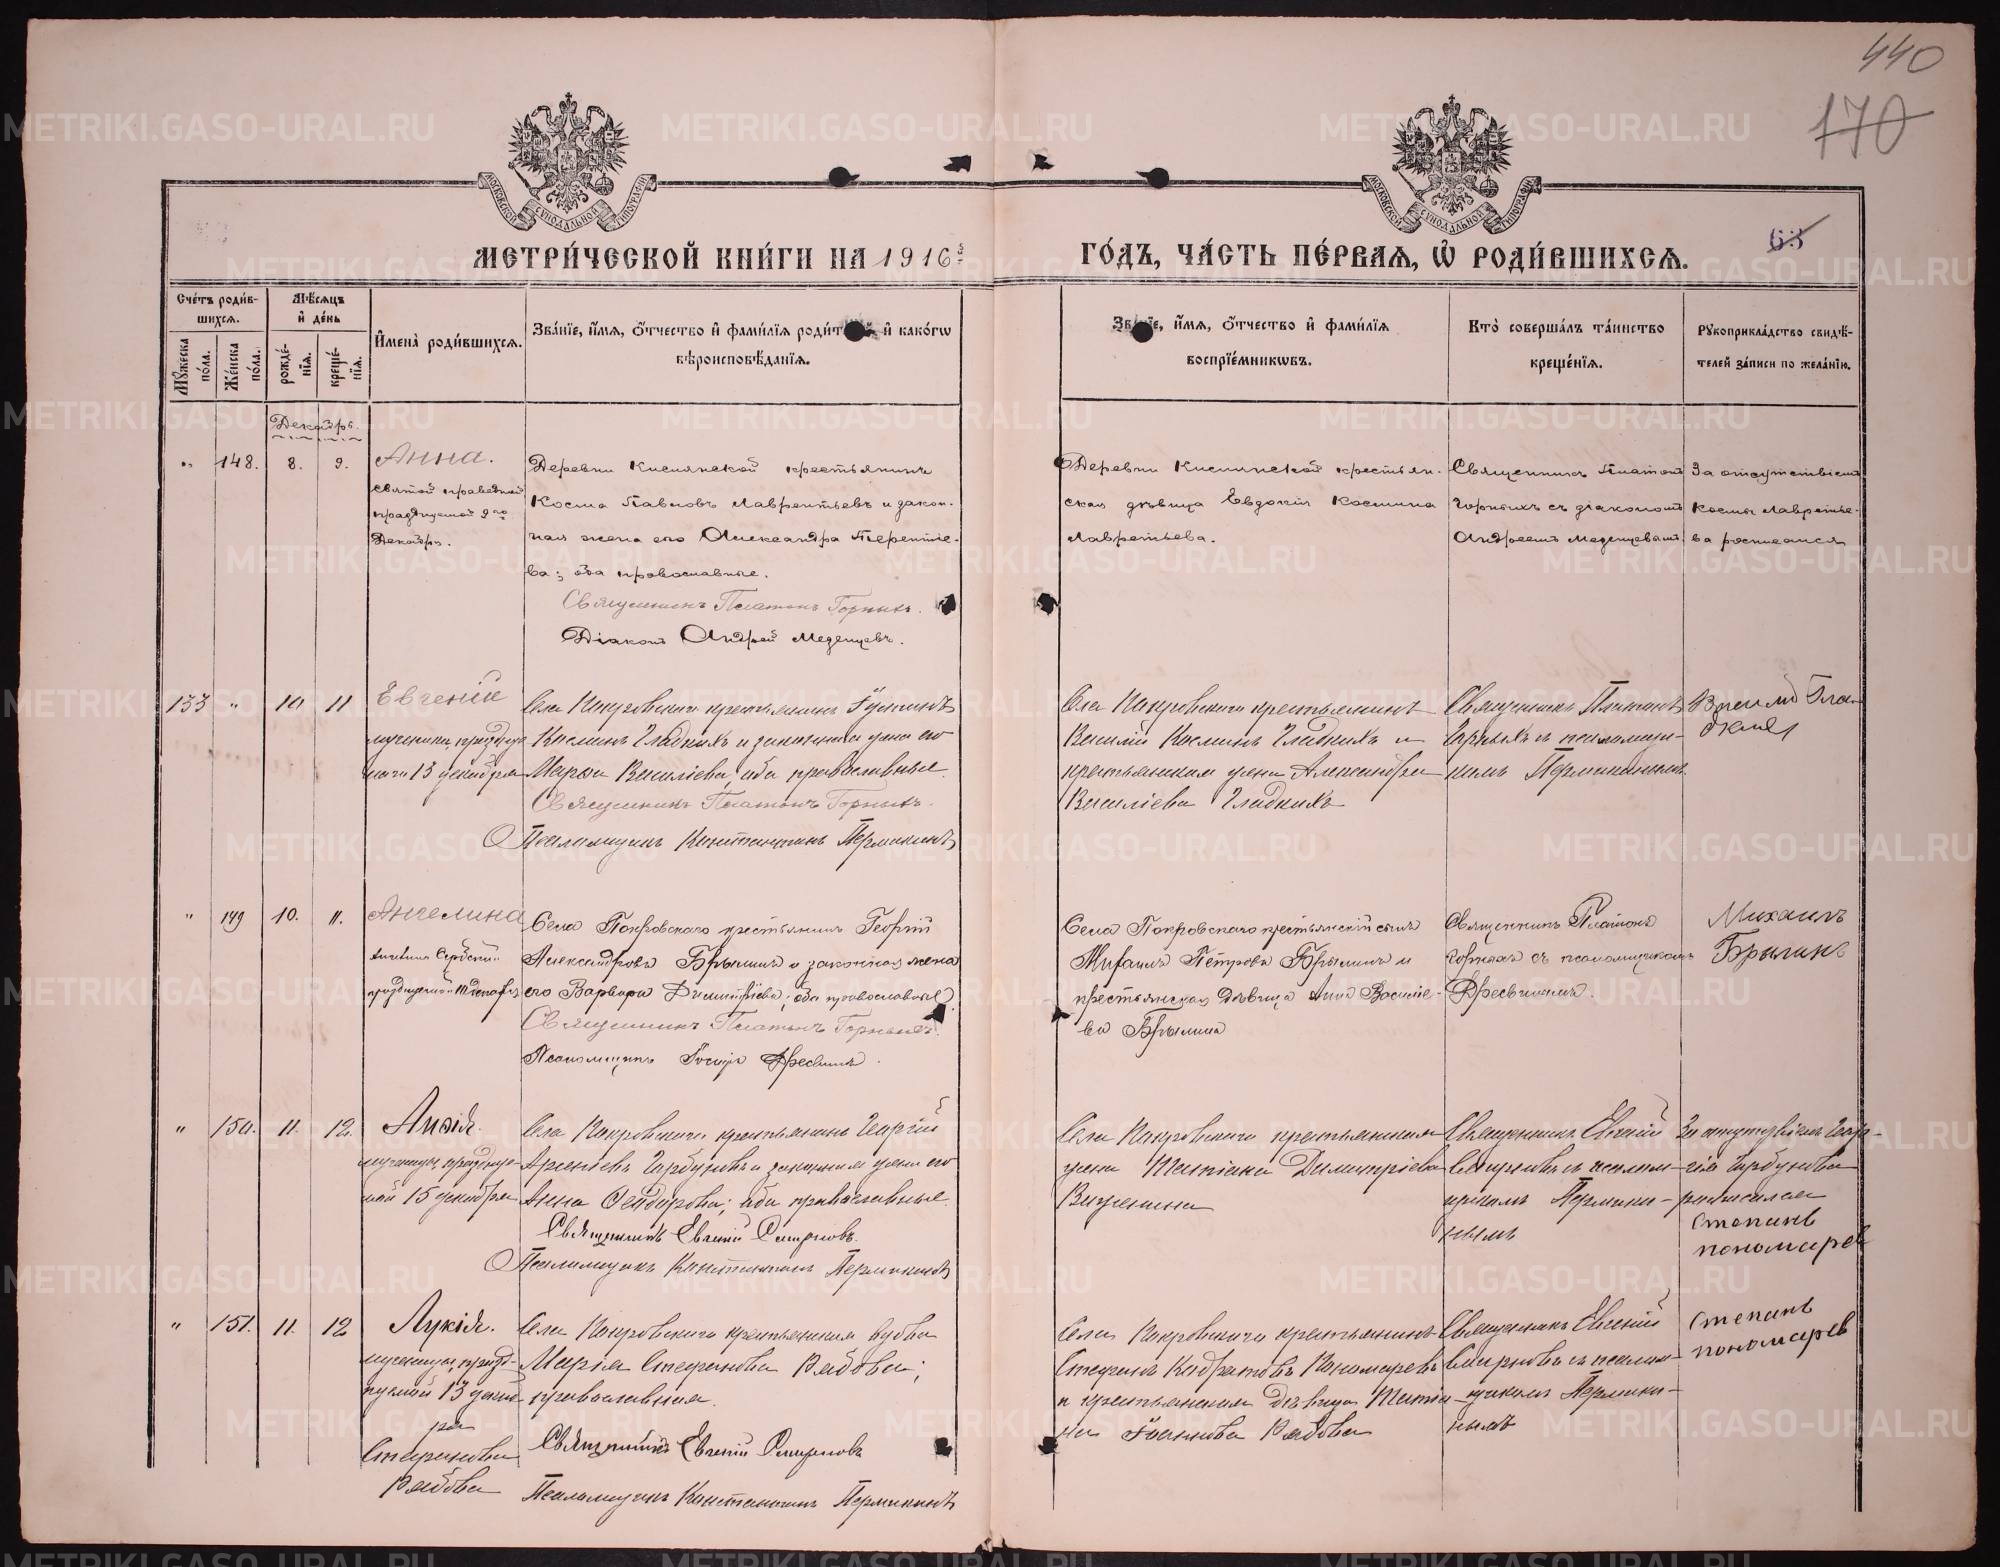 440
170
63
МОСКОВСКОЙ СѴНОДАЛЬНОЙ ТИПОГРАФІИ
МОСКОВСКОЙ СѴНОДАЛЬНОЙ ТИПОГРАФІИ
МЕТРИ́ЧЕСКОЙ КНИ́ГИ НА 1916
ГО́ДЪ, ЧА́СТЬ ПЕ́РВАЯ, Ѡ РОДИ́ВШИХСЯ.
Сче́тъ роди́в-
шихся.
Мꙋжеска по́ла.
Же́нска по́ла.
Мѣ́сяцъ
и де́нь
рожде́-
нїя.
креще́-
нїя.
И҆мена̀ роди́вшихся.
Зва́нїе, и҆́мя, ѻ҆́тчество и҆ фами́лїя роди́т й и҆ како́гѡ
вѣроисповѣ́данїя.
Зва́нїе, и҆́мя, ѻ҆́тчество и҆ фами́лїя
воспрїе́мникѡвъ.
Кто̀ соверша́лъ та́инство
креще́нїя.
Рꙋкоприкла́дство свидѣ́-
телей за́писи по жела́нїю.
Декабрь.
" 148. 8. 9. Анна.
святой праведной
празднуемой 9го
Декабря.
Деревни крестьянинъ
Косма Павловъ Лаврентьевъ и закон-
ная жена его Александра Терентіе-
ва; оба православные.
Священникъ Платонъ Горныхъ.
Діаконъ Андрей Меденцевъ.
Деревни крестьян-
ская дѣвица Евдокія Космина
Лаврентьева.
Священникъ Платонъ
Горныхъ съ діакономъ
Андреемъ Меденцевымъ
За отсутствіемъ
Космы Лавренть-
ва росписался
133 " 10 11 Евгеній
мученика праздну
13 декабря
Села Покровскаго крестьянинъ
Косминъ Гладкихъ и законная жена его
Марѳа Василіева, оба православные.
Священникъ Платонъ Горныхъ.
Псаломщикъ Константинъ Пермякинъ
Села Покровскаго крестьянинъ
Василій Косминъ Гладкихъ и
крестьянская жена Александра
Василіева Гладкихъ
Священникъ Платонъ
Горныхъ съ псаломщи-
комъ Пермякинымъ.
" 149 10. 11. Ангелина
Села Покровскаго крестьянинъ Георгій
Александровъ Брылинъ и законная жена
его Варвара Димитріева; оба православные
Священникъ Платонъ Горныхъ.
Псаломщикъ Іосифъ Дресвинъ.
Села Покровскаго крестьянскій сынъ
Михаилъ Петровъ Брылинъ и
крестьянская дѣвица Анна Василіе-
ва Брылина
Священникъ Платонъ
Горныхъ съ псаломщикомъ
Дресвинымъ.
Михаилъ
Брылинъ
" 150. 11. 12. Анѳія.
мученицы праздну-
мой 15 декабря
Села Покровскаго крестьянинъ Георгій
Арсеніевъ Горбуновъ и законная жена его
Анна Ѳеодорова; оба православные.
Священникъ Евгеній Смирновъ.
Псаломщикъ Константинъ Пермякинъ
Села Покровскаго крестьянская
жена Татіана Димитріева
Священникъ Евгеній
Смирновъ съ псалом-
щикомъ Пермяки-
нымъ
За отсутствіемъ Геор-
гія Горбунова
росписался
Степанъ
пономарев
" 151. 11. 12 Лукія.
мученицы праздн-
нуемой 13 декаб-
ря
Стефанова
Рябова
Села Покровскаго крестьянская вдова
Марія Стефанова Рябова;
православная.
Священникъ Евгеній Смирновъ
Псаломщикъ Константинъ Пермякинъ
Села Покровскаго крестьянинъ
Стефанъ Кодратовъ Пономаревъ
и крестьянская дѣвица Татіа-
на Іоаннова Рябова
Священникъ Евгеній
Смирновъ съ псалом-
щикомъ Пермяки-
нымъ
Степанъ
пономарев
METRIKI.GASO-URAL.RU